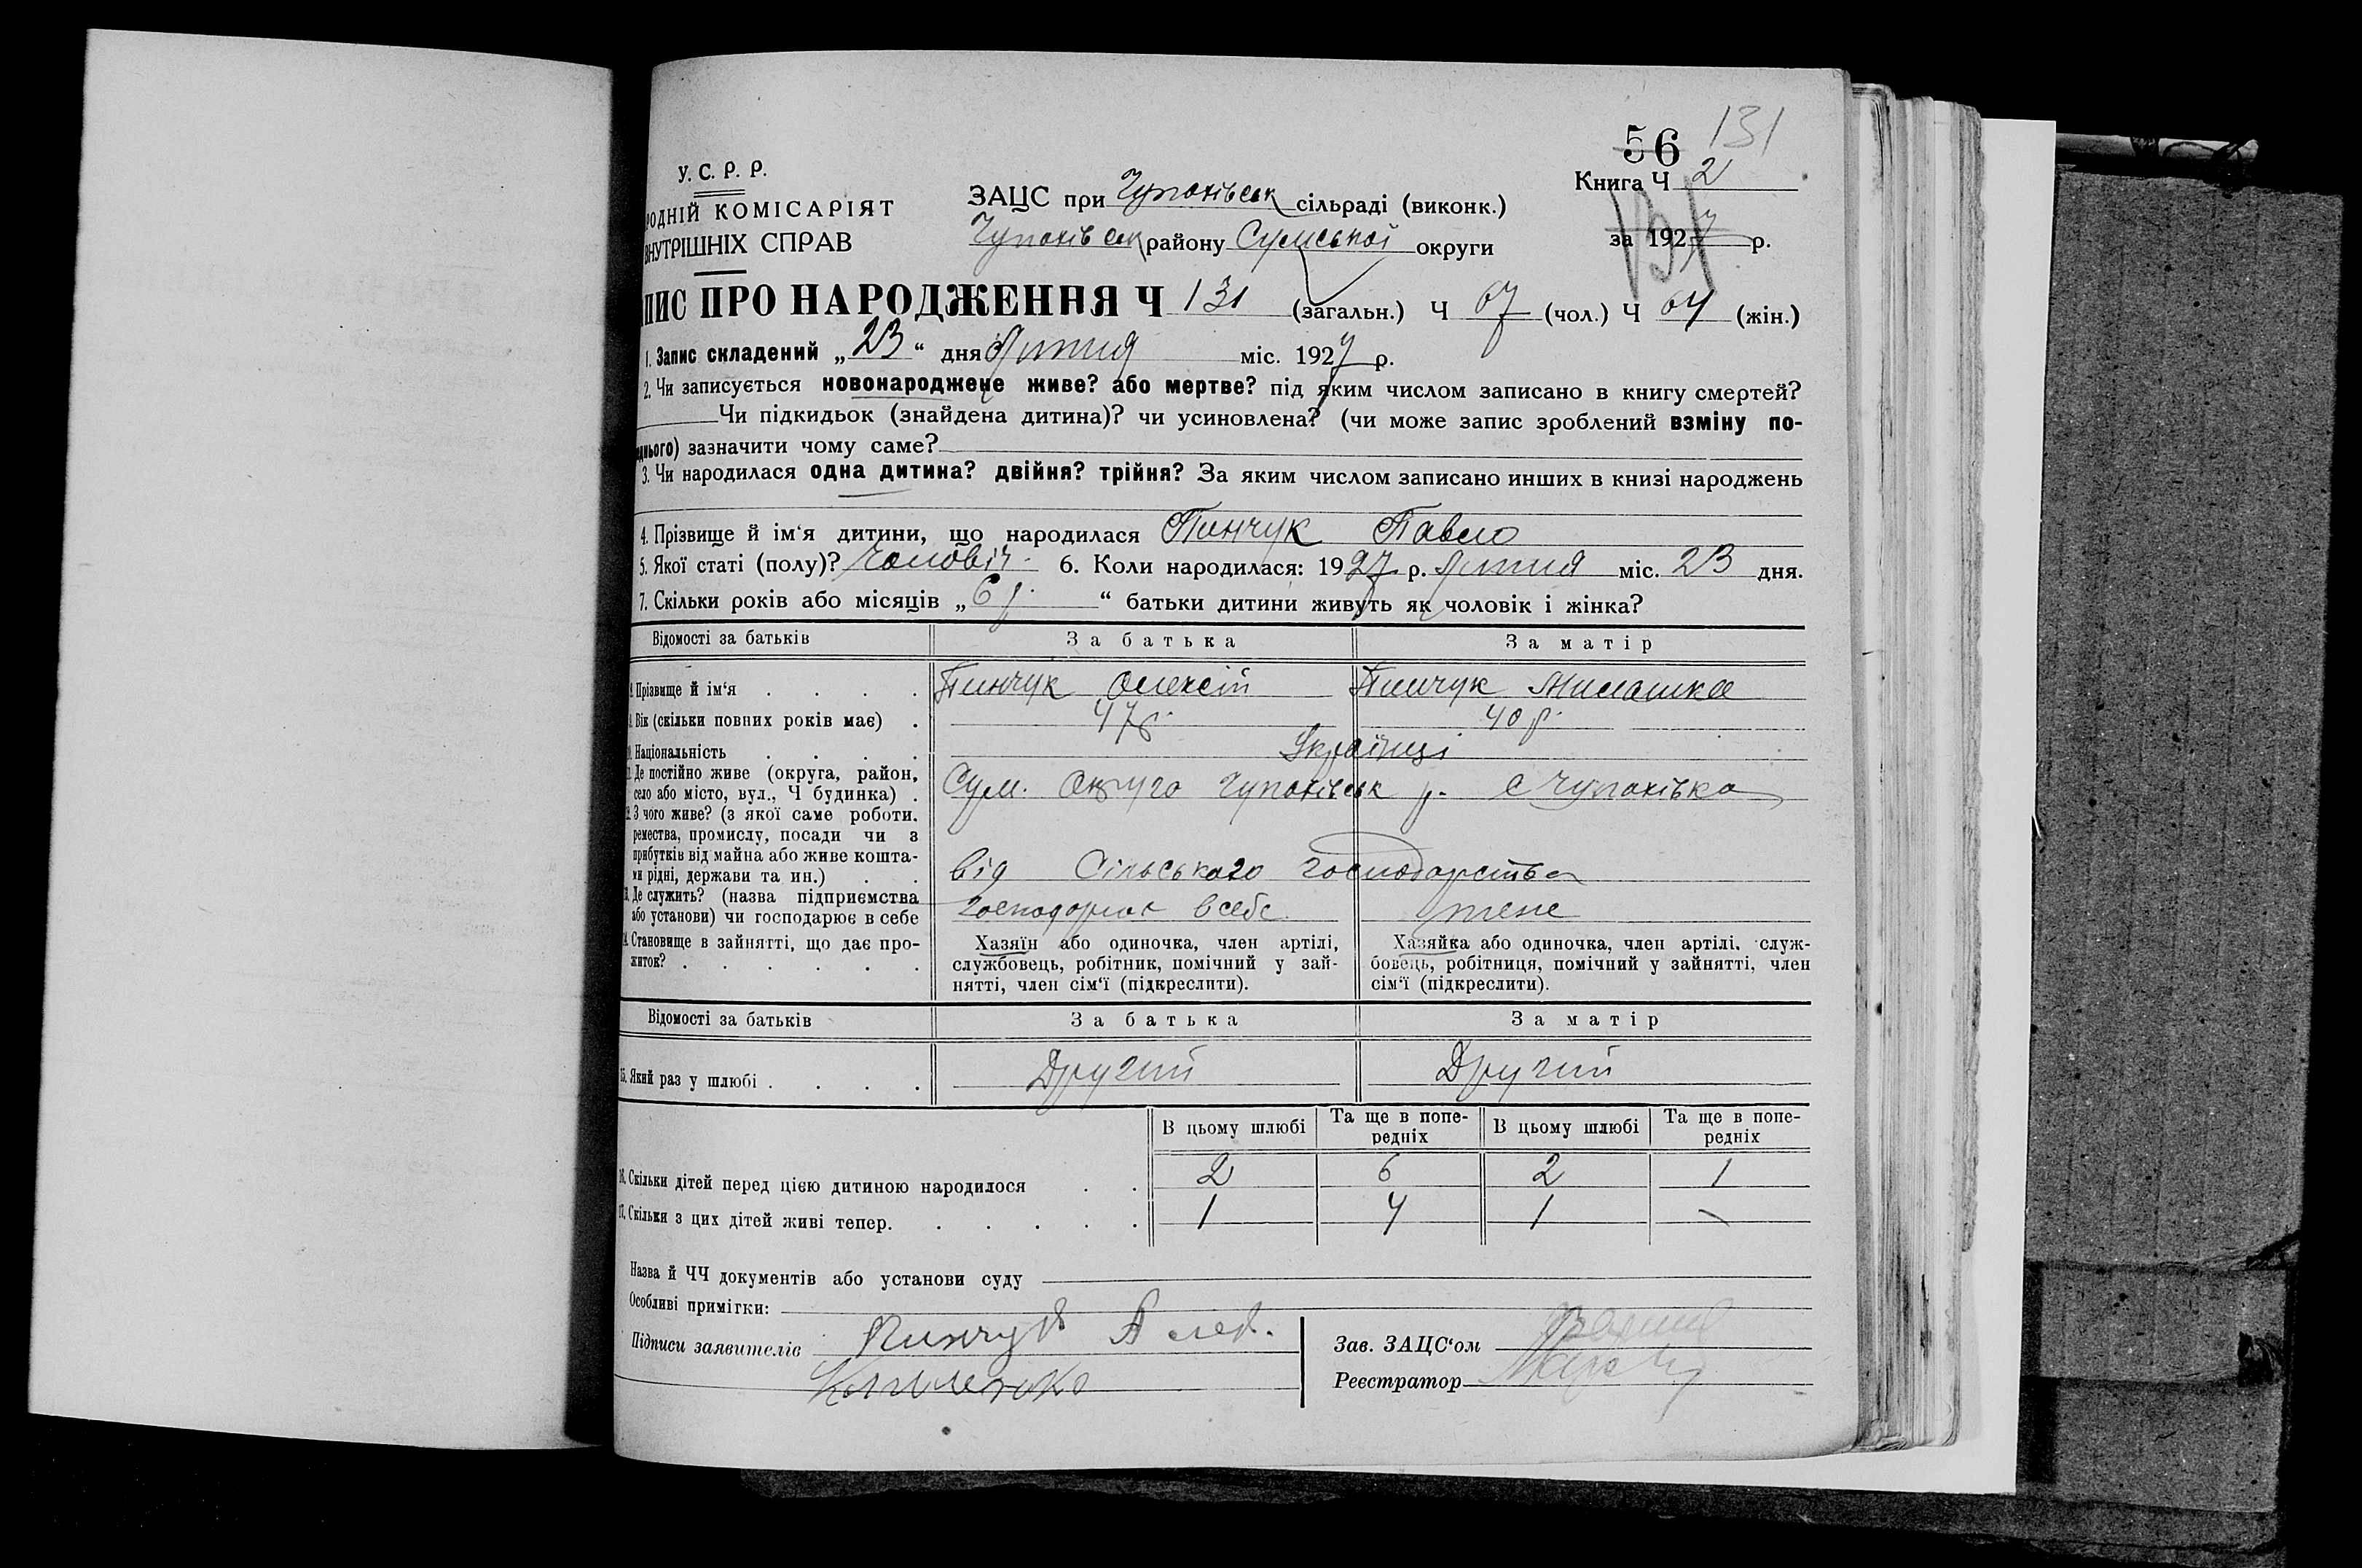 56 131
У. С. Р. Р.
Книга Ч 2
РОДНІЙ КОМІСАРІЯТ
ЗАЦС при Чупахівськ сільраді (виконк.)
ВНУТРІШНІХ СПРАВ
Чупахівськ району Сумської округи
за 1927 р.
131
ПИС ПРО НАРОДЖЕННЯ Ч 131 (загальн.) Ч 67 (чол.) Ч 64 (жін.)
1. Запис складений „23“ дня Лютня міс. 1927 р.
2. Чи записується новонароджене живе? або мертве? під яким числом записано в книгу смертей?
Чи підкидьок (знайдена дитина)? чи усиновлена? (чи може запис зроблений взміну по-
днього) зазначити чому саме?
3. Чи народилася одна дитина? двійня? трійня? За яким числом записано инших в книзі народжень
4. Прізвище й ім‘я дитини, що народилася Пинчук Павло
5. Якої статі (полу)? чоловіч. 6. Коли народилася: 1927 р. Лютня міс. 23 дня.
7. Скільки років або місяців „6 р.“ батьки дитини живуть як чоловік і жінка?
Відомості за батьків За батька За матір
8. Прізвище й ім‘я . . . . Пинчук Олексій Пинчук Милашка
9. Вік (скільки повних років має) . 47 р. 40 р.
10. Національність . . . . Українці
11. Де постійно живе (округа, район,
село або місто, вул., Ч будинка) . Сум. Округо Чупахівськ р. с Чупахівка
12. З чого живе? (з якої саме роботи.
ремества, промислу, посади чи з
прибутків від майна або живе кошта-
ми рідні, держави та ин.) . . від Сільського господарства
13. Де служить? (назва підприємства
або установи) чи господарює в себе господарює в себе теж
14. Становище в зайнятті, що дає про-
житок? . . . . . .
Хазяїн або одиночка, член артілі,
службовець, робітник, помічний у зай-
нятті, член сім‘ї (підкреслити).
Хазяйка або одиночка, член артілі. служ-
бовець, робітниця, помічний у зайнятті, член
сім‘ї (підкреслити).
Відомості за батьків За батька За матір
15. Який раз у шлюбі . . . . Другий Другий
В цьому шлюбі Та ще в попе-
редніх В цьому шлюбі Та ще в попе-
редніх
16. Скільки дітей перед цією дитиною народилося . . 2 6 2 1
17. Скільки з цих дітей живі тепер. . . . . . 1 4 1 –
Назва й ЧЧ документів або установи суду
Особливі примігки:
Підписи заявителів Пинчук Алек.
Зав. ЗАЦС‘ом
Реєстратор